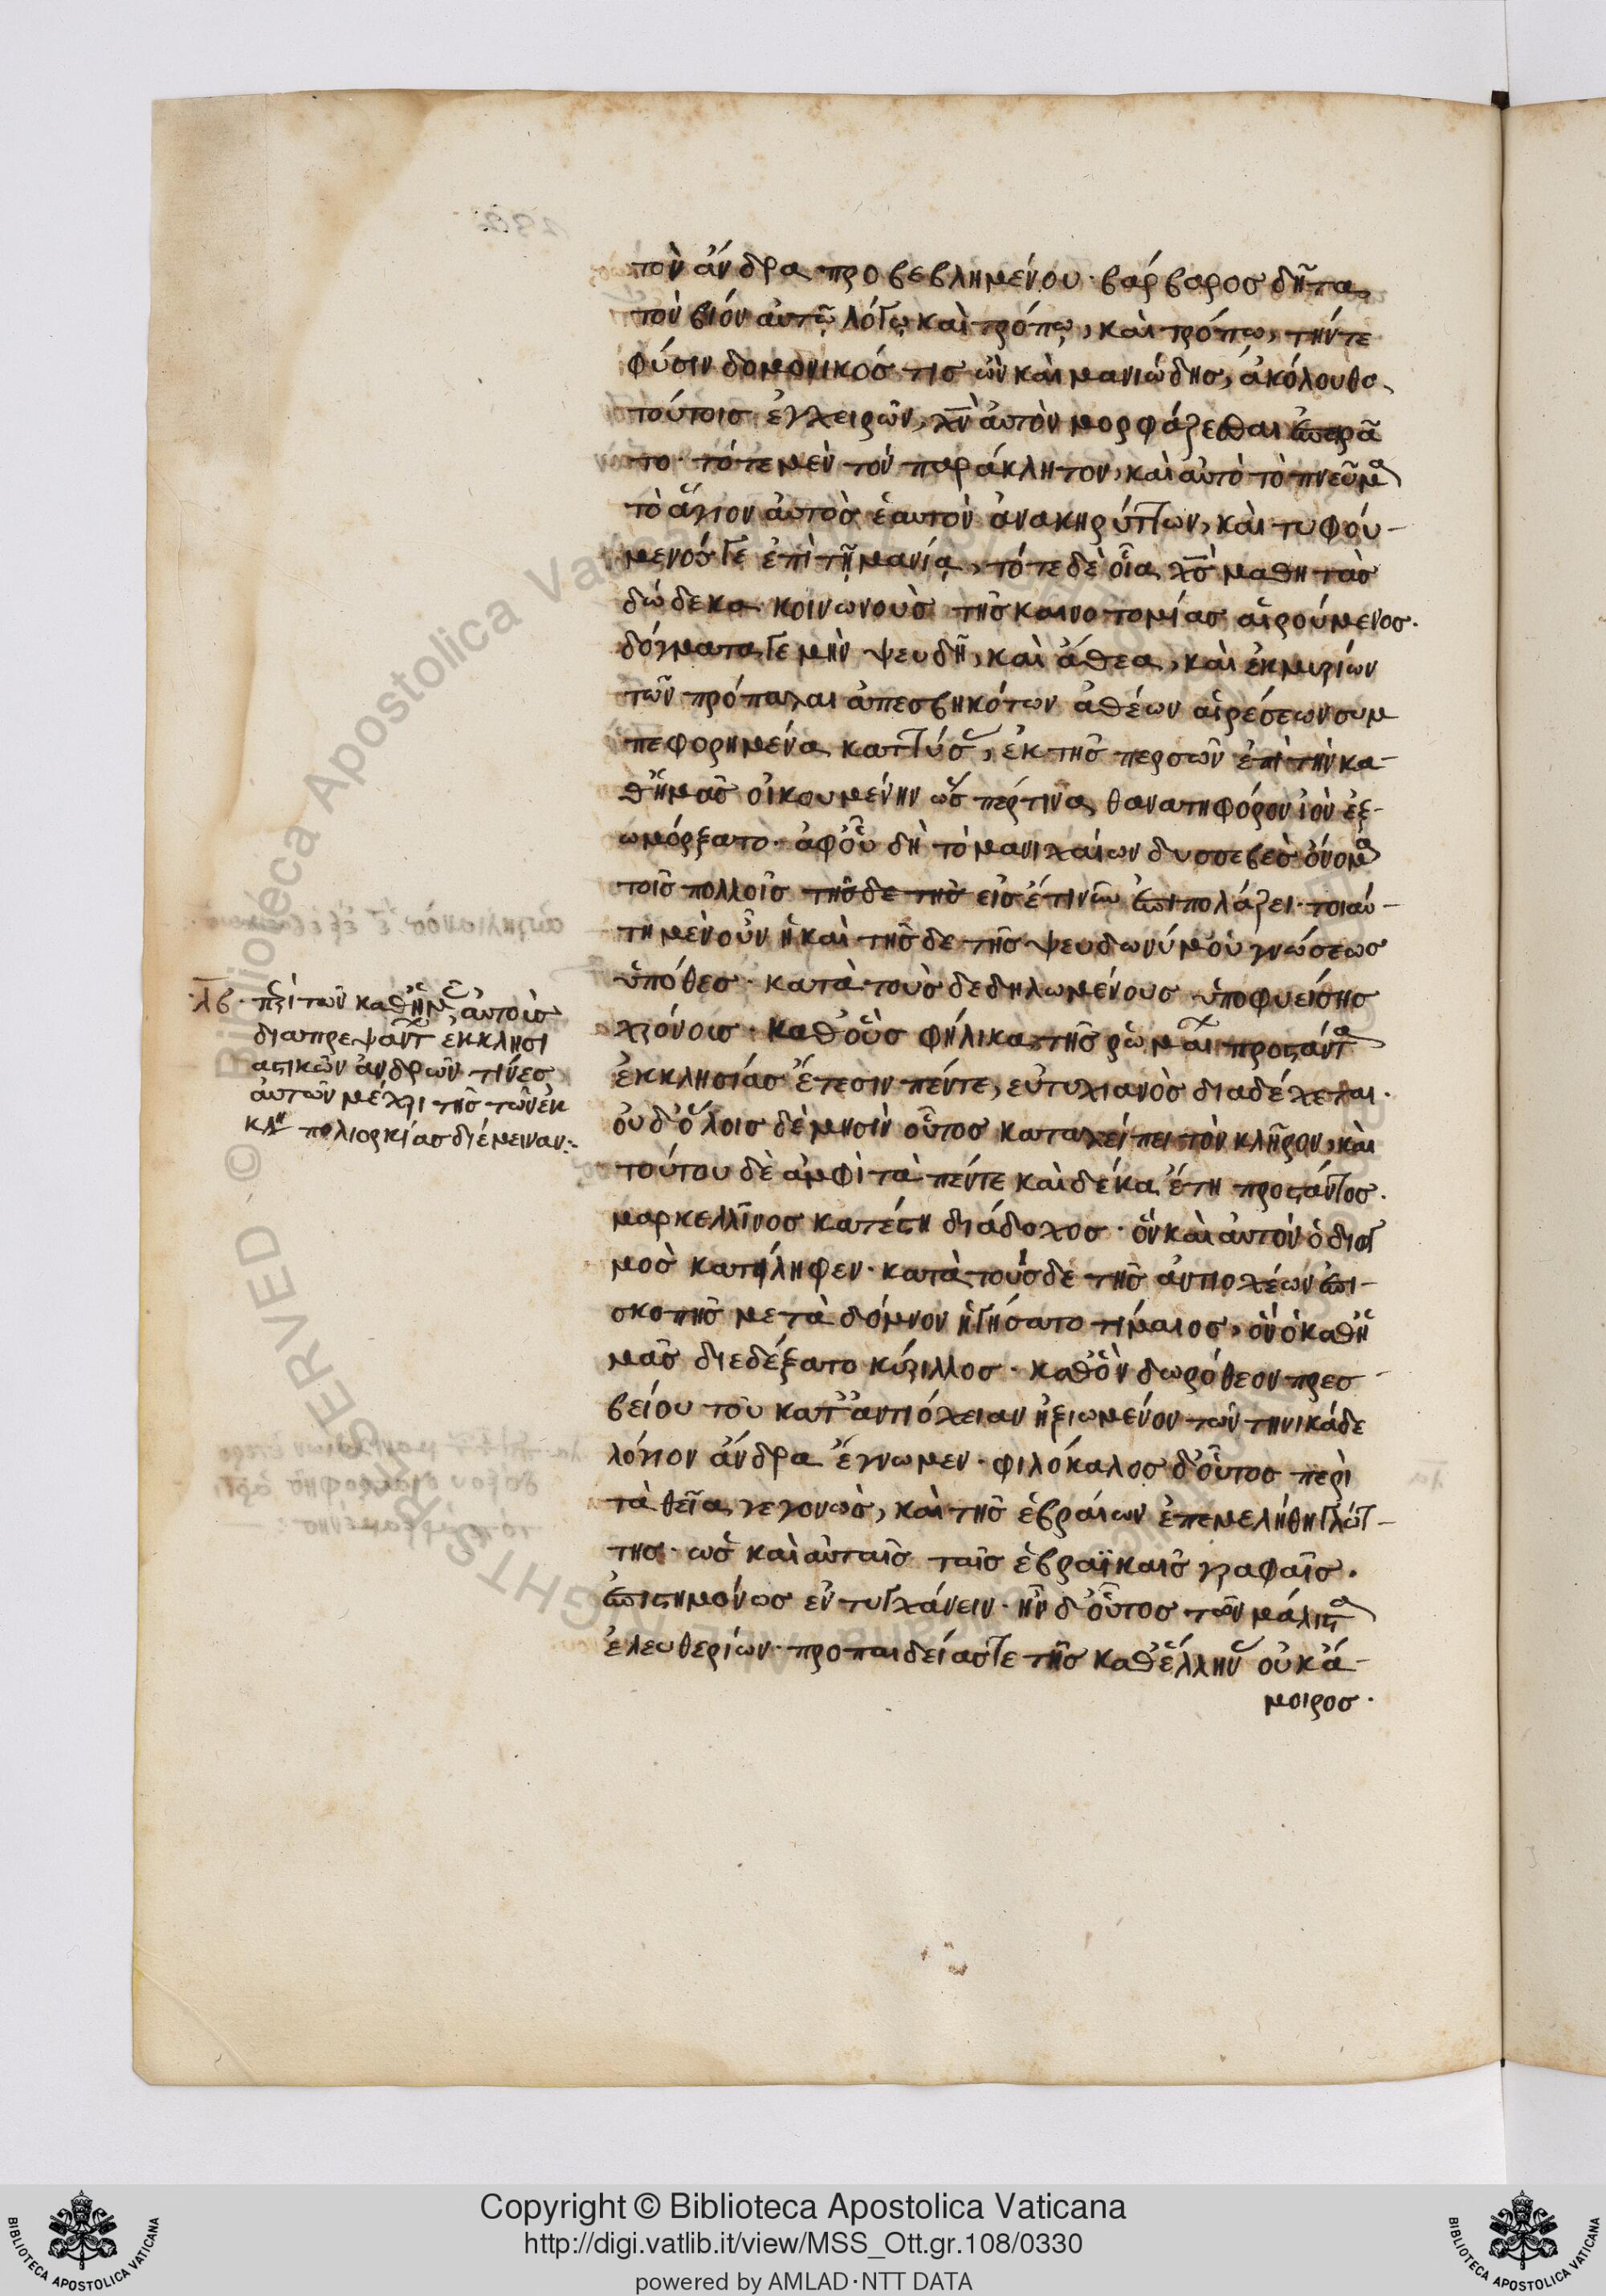 τὸν ἄνδρα προβεβλημένου· βάρβαρος δῆτα
τὸν βίον αὐτῶ λόγω καὶ τρόπω, καὶ τρόπω, τήν τε
φύσιν δαιμονικός τις ὢν καὶ μανιώδης, ἀκόλουθα
τούτοις ἐγχειρῶν, χν̄ αὐτὸν μορφάζεσθαι ἐπειρᾶ
το· τότε μὲν τὸν παράκλητον, καὶ αὐτὸ τὸ πνεῦμα
τὸ ἅγιον αὐτὸς ἑαυτὸν ἀνακηρύττων, καὶ τυφού-
μενός γε ἐπὶ τῇ μανίᾳ, τότε δὲ οἷα χς̄ μαθητὰς
δώδεκα κοινωνοὺς τῆς καινοτομίας αἱρούμενος·
δόγματα γε μὴν ψευδῆ, καὶ ἄθεα, καὶ ἐκ μυρίων
τῶν πρόπαλαι ἀπεσβηκότων ἀθέων αἱρέσεων συμ
πεφορημένα καττύσας, ἐκ τῆς περσῶν ἐπὶ τὴν κα-
θ' ἡμᾶς οἰκουμένην ὥσπέρ τινα θανατηφόρον ἰὸν ἐξ-
ωμόρξατο· ἀφ' οὗ δὴ τὸ μανιχαίων δυσσεβὲς ὄνομα
τοῖς πολλοῖς τῆς δε τῆς εἰσέτι νῦν ἐπιπολάζει· τοιαύ-
τη μὲν οὖν ἡ καὶ τῆς δε τῆς ψευδωνύμου γνώσεως
ὑπόθεσ· κατὰ τοὺς δεδηλωμένους ὑποφυείσης
χρόνοις· καθ' οὓς φήλικα τῆς ῥωμαι προστάντα
ἐκκλησίας ἔτεσιν πέντε, εὐτυχιανὸς διαδέχεται·
οὐδ' ὅλοις δὲ μησὶν οὗτος καταλείπει τὸν κλῆρον, καὶ
τούτου δὲ ἀμφὶ τὰ πέντε καὶ δέκα ἔτη προστάντος·
μαρκελλῖνος κατέστη διάδοχος· ὃν καὶ αὐτὸν ὁ διωγ
μὸς κατείληφεν· κατὰ τούσδε τῆς ἀντιοχέων ἐπι-
σκοπῆς μετὰ δόμνον ἡγήσατο τίμαιος, ὃν ὁ καθ' ἡ
μᾶς διεδέξατο κύριλλος· καθ' ὃν δωρόθεον πρεσ
βείου τοῦ κατ' ἀντιόχειαν ἠξιωμένον τῶν τηνικάδε
λόγιον ἄνδρα ἔγνωμεν· φιλόκαλος δ' οὗτος περὶ
τὰ θεῖα γεγονὼς, καὶ τῆς ἑβραίων ἐπεμελήθη γλώτ-
της· ὡς καὶ αὐταῖς ταῖς ἑβραϊκαῖς γραφαῖς·
ἐπιστημόνως ἐντυγχάνειν· ἦν δ' οὗτος τῶν μάλιστα
ἐλευθερίων· προπαιδείας τε τῆς καθ' ἕλλην οὐκ ἄ-
μοιρος·
λβ· περὶ τῶν καθ' ἡμᾶς αὐτοὺς
διαπρεψάντ ἐκκλησι
αστικῶν ἀνδρῶν τίνες
αὐτῶν μέχρι τῆς τῶν ἐκ
κλη πολιορκίας διέμειναν:
Copyright © Biblioteca Apostolica Vaticana
http://digi.vatlib.it/view/MSS_Ott.gr.108/0330
powered by AMLAD·NTT DATA
BIBLIOTECA APOSTOLICA VATICANA
BIBLIOTECA APOSTOLICA VATICANA